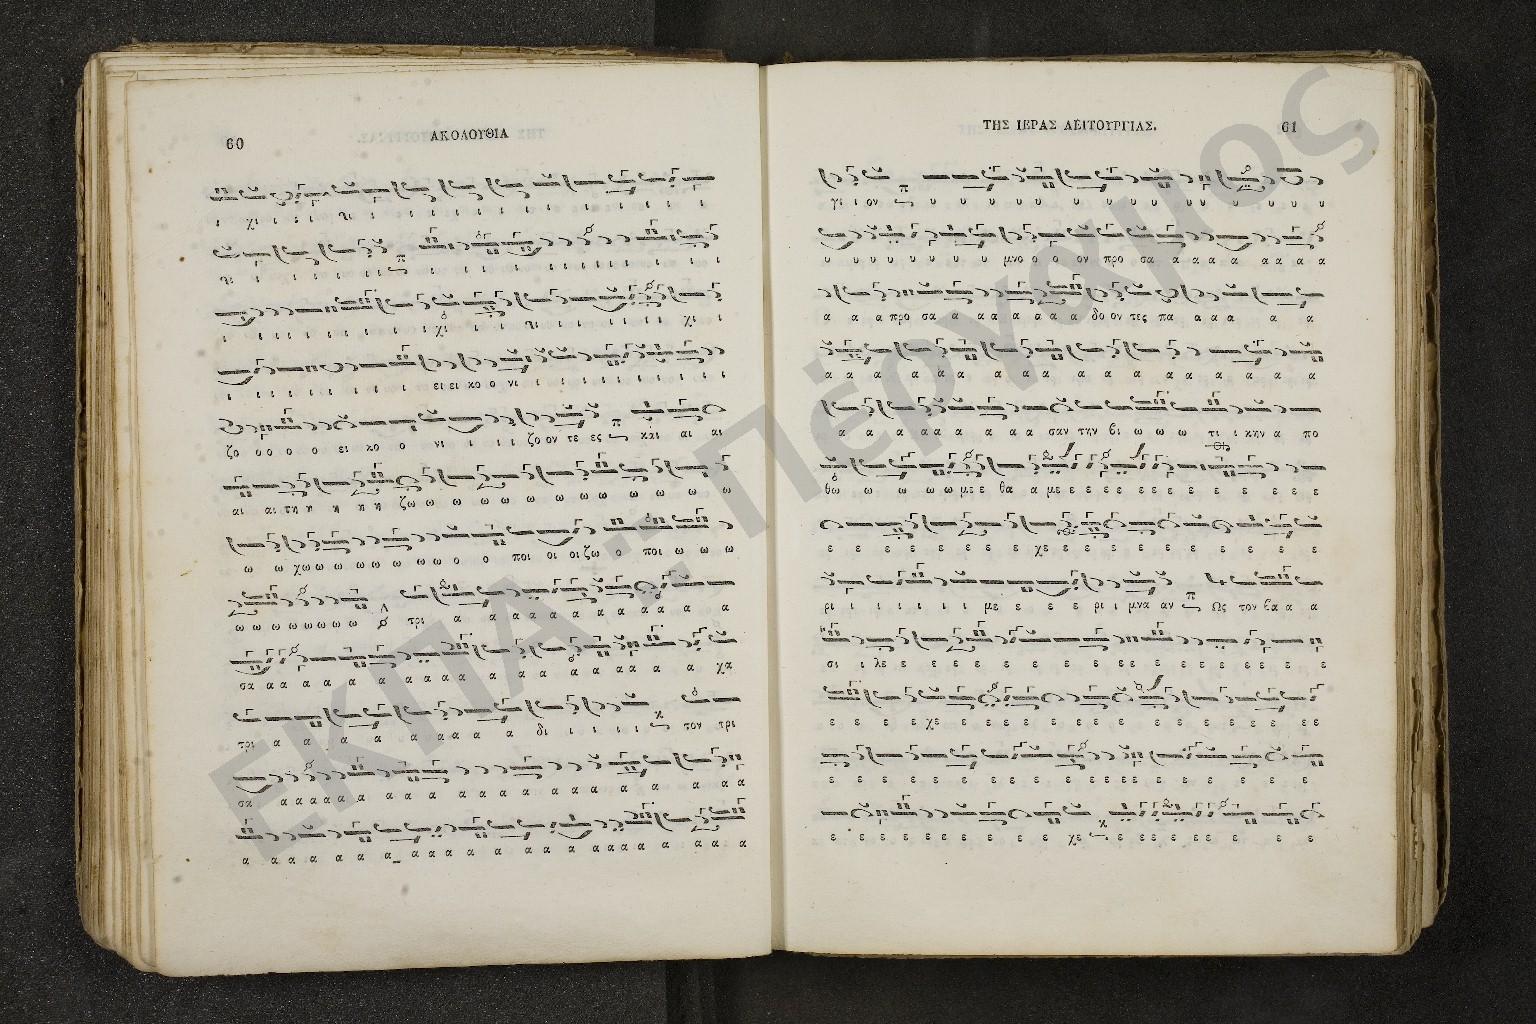 60
ΑΚΟΛΟΥΘΙΑ
ι χι ι ι ι χι ι ι ι ι ι ι ι ι ι ι
χι ι ι ι ι ι ι ι ι ι ι ι ι ι ι ι ι ι ι
ι ι ι ι ι ι ι ι χι ι ι χι ι ι ι ι ι ι χι ι
ι ι ι ι ι ι ι ει ει κο ο νι ι ι ι ι ι ι ι ι ι ι ι
ζο ο ο ο ο ει κο ο νι ι ι ι ζο ον τε ες και αι αι
αι αι τη η η η ζω ω ω ω ω ω ω ω ω ω ω ω
ω ω χω ω ω ω ω ω ω ω ο ο ποι οι οι ζω ο ποι ω ω ω
ω ω ω ω ω ω ω ω τρι α α α α α α α α α α α α
σα α α α α α α α α α α α α α α α α α α χα
τρι α α α α α α α α δι ι ι ι ι τον τρι
σα α α α α α α α α α α α α α α α α α α
α α α α α α α α α α α α α α α α α α α α α α α α
ΤΗΣ ΙΕΡΑΣ ΛΕΙΤΟΥΡΓΙΑΣ.
61
γι ι ον υ υ υ υ υ υ υ υ υ υ υ υ υ υ
υ υ υ υ υ υ υ υ μνο ο ο ον προ σα α α α α α α α α
α α α προ σα α α α α α α α δο ον τες πα α α α α α
α α α α α α α α α α α α α α α α
α α α α α α α α α σαν την βι ω ω ω τι ι κην α πο
θω ω ω ω ω με ε θα α με ε ε ε ε ε ε ε ε ε ε ε ε ε
ε ε ε ε ε ε ε ε χε ε ε ε ε ε ε ε ε ε
ρι ι ι ι ι ι ι με ε ε ε ρι ι μνα αν Ως τον βα α α
σι ι λε ε ε ε ε ε ε ε ε ε ε ε ε ε ε ε ε ε ε
ε ε ε χε ε ε ε ε ε ε ε ε ε ε ε ε ε ε ε
ε ε ε ε ε ε ε ε ε ε ε ε ε ε ε ε ε ε
ε ε ε ε ε ε ε ε ε ε χε ε ε ε ε ε ε ε ε ε
ΕΚΠΑ: Πέργαμος